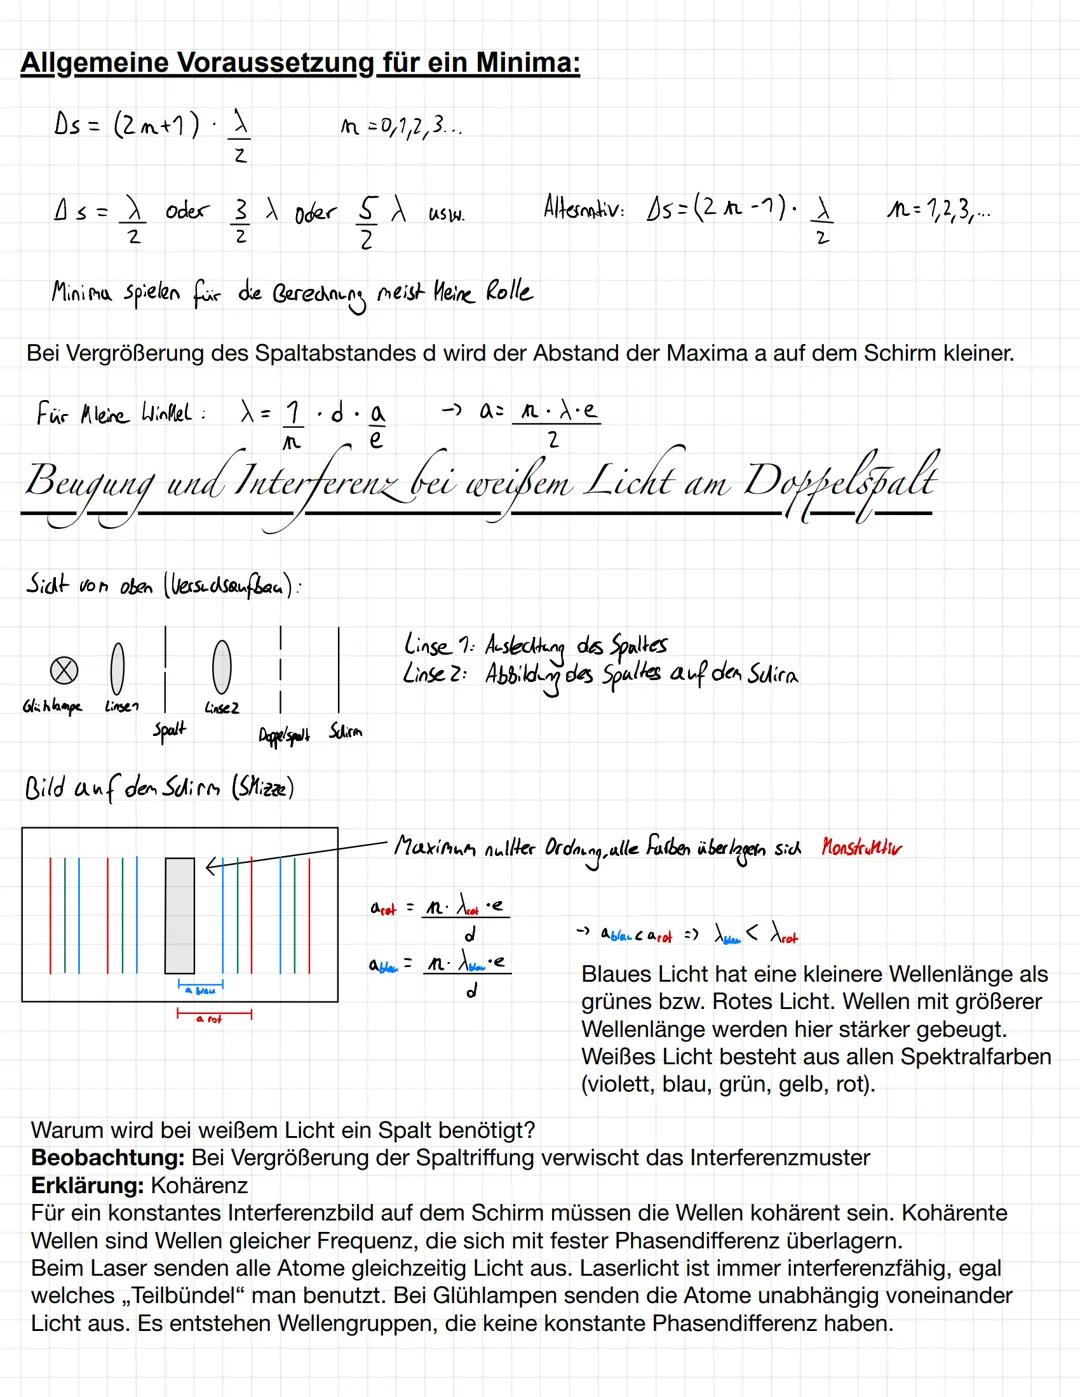 Allgemeine Voraussetzung für ein Minima:
Δs = (2n+1) · λ/2 n = 0,1,2,3...
Δs = λ/2 oder 3/2 λ oder 5/2 λ usw. Alternativ: Δs = (2n-1) · λ/2 n = 1,2,3,...
Minima spielen für die Berechnung meist kleine Rolle
Bei Vergrößerung des Spaltabstandes d wird der Abstand der Maxima a auf dem Schirm kleiner.
Für kleine Winkel: λ = 1/n · d · a/e -> a = n · λ · e / 2
Beugung und Interferenz bei weißem Licht am Doppelspalt
Sicht von oben (Versuchsaufbau):
Linse 1: Ausleuchtung des Spaltes
Linse 2: Abbildung des Spaltes auf den Schirm
Glühlampe Linse 1 Linse 2
Spalt Doppelspalt Schirm
Bild auf dem Schirm (Skizze)
Maximum nullter Ordnung, alle Farben überlagern sich Konstruktiv
a rot = n · λ rot · e / d
-> a blau < a rot => λ blau < λ rot
a blau = n · λ blau · e / d
a blau
a rot
Blaues Licht hat eine kleinere Wellenlänge als
grünes bzw. Rotes Licht. Wellen mit größerer
Wellenlänge werden hier stärker gebeugt.
Weißes Licht besteht aus allen Spektralfarben
(violett, blau, grün, gelb, rot).
Warum wird bei weißem Licht ein Spalt benötigt?
Beobachtung: Bei Vergrößerung der Spaltriffung verwischt das Interferenzmuster
Erklärung: Kohärenz
Für ein konstantes Interferenzbild auf dem Schirm müssen die Wellen kohärent sein. Kohärente
Wellen sind Wellen gleicher Frequenz, die sich mit fester Phasendifferenz überlagern.
Beim Laser senden alle Atome gleichzeitig Licht aus. Laserlicht ist immer interferenzfähig, egal
welches „Teilbündel“ man benutzt. Bei Glühlampen senden die Atome unabhängig voneinander
Licht aus. Es entstehen Wellengruppen, die keine konstante Phasendifferenz haben.